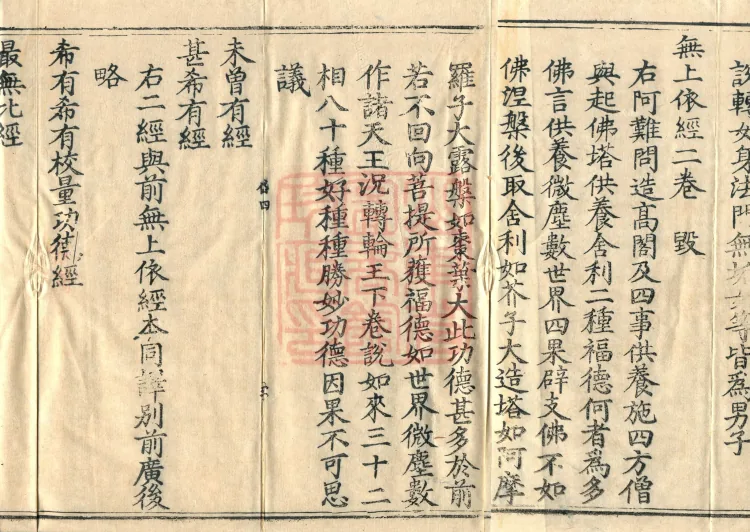 說轉女身法門無垢女等皆爲男子
無上依經二卷 毀
右阿難問造高閣及四事供養施四方僧
與起佛塔供養舍利二種福德何者爲多
佛言供養微塵數世界四果辟支佛不如
佛涅槃後取舍利如芥子大造塔如阿摩
羅子大露槃如棗葉大此功德甚多於前
若不回向菩提所獲福德如世界微塵數
作諸天王況轉輪王下卷說如來三十二
相八十種好種種勝妙功德因果不可思
議
未曾有經
甚希有經
右二經與前無上依經本同譯別前廣後
略
希有希有校量功德經
最無比經